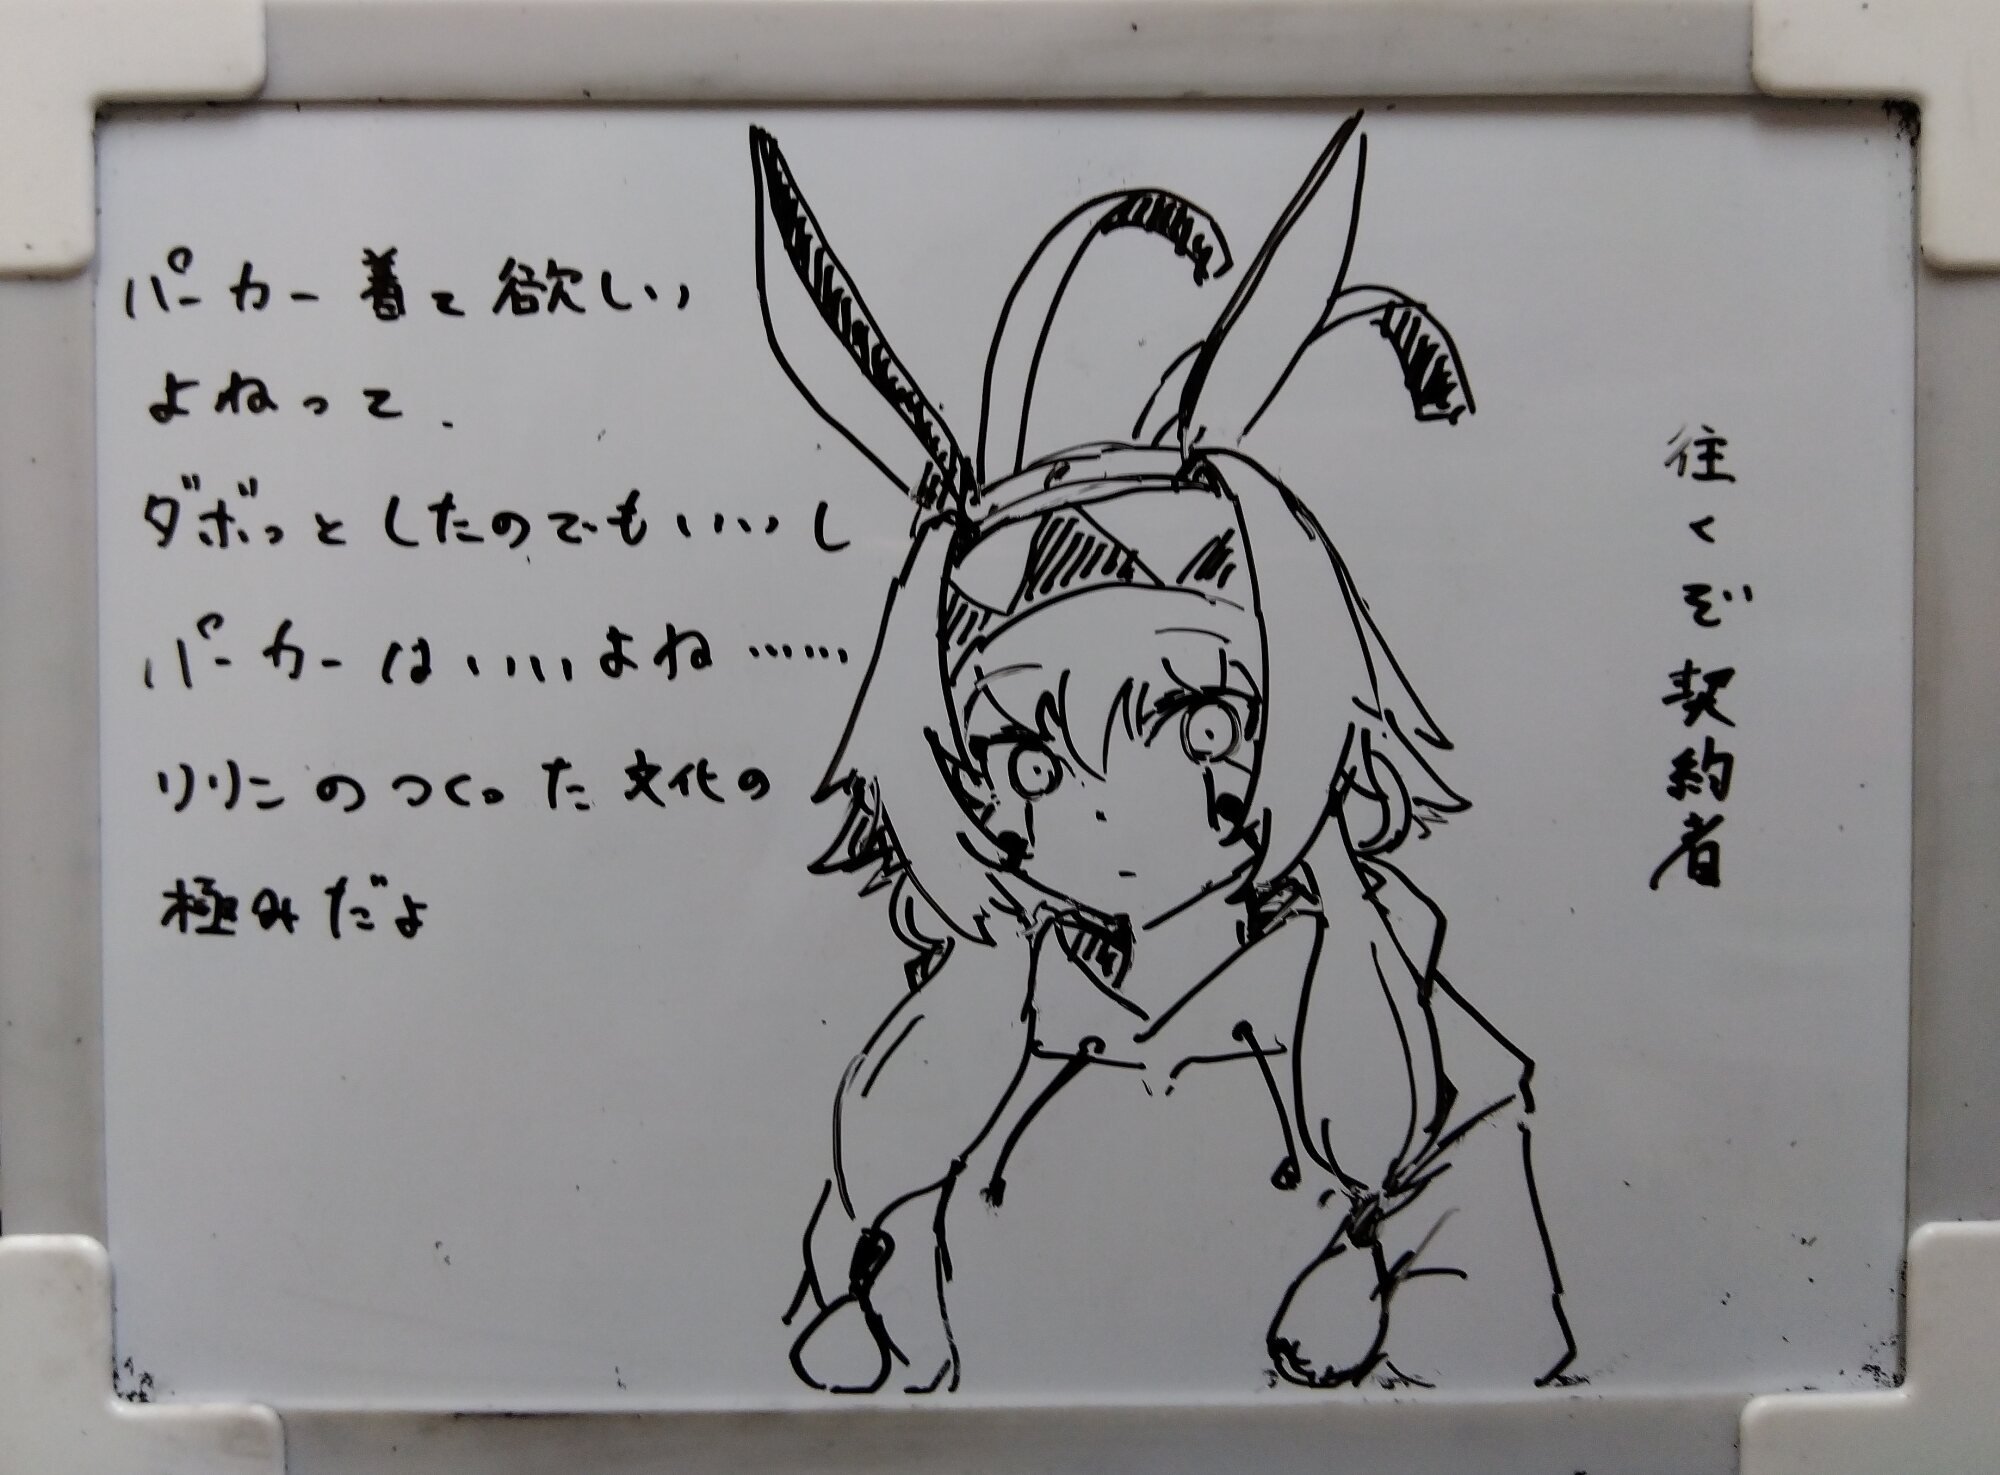 パーカー着て欲しい
よねって.
ダボっとしたのでもいいし
パーカーはいいよね……
リリンのつくった文化の
極みだよ
往くぞ契約者